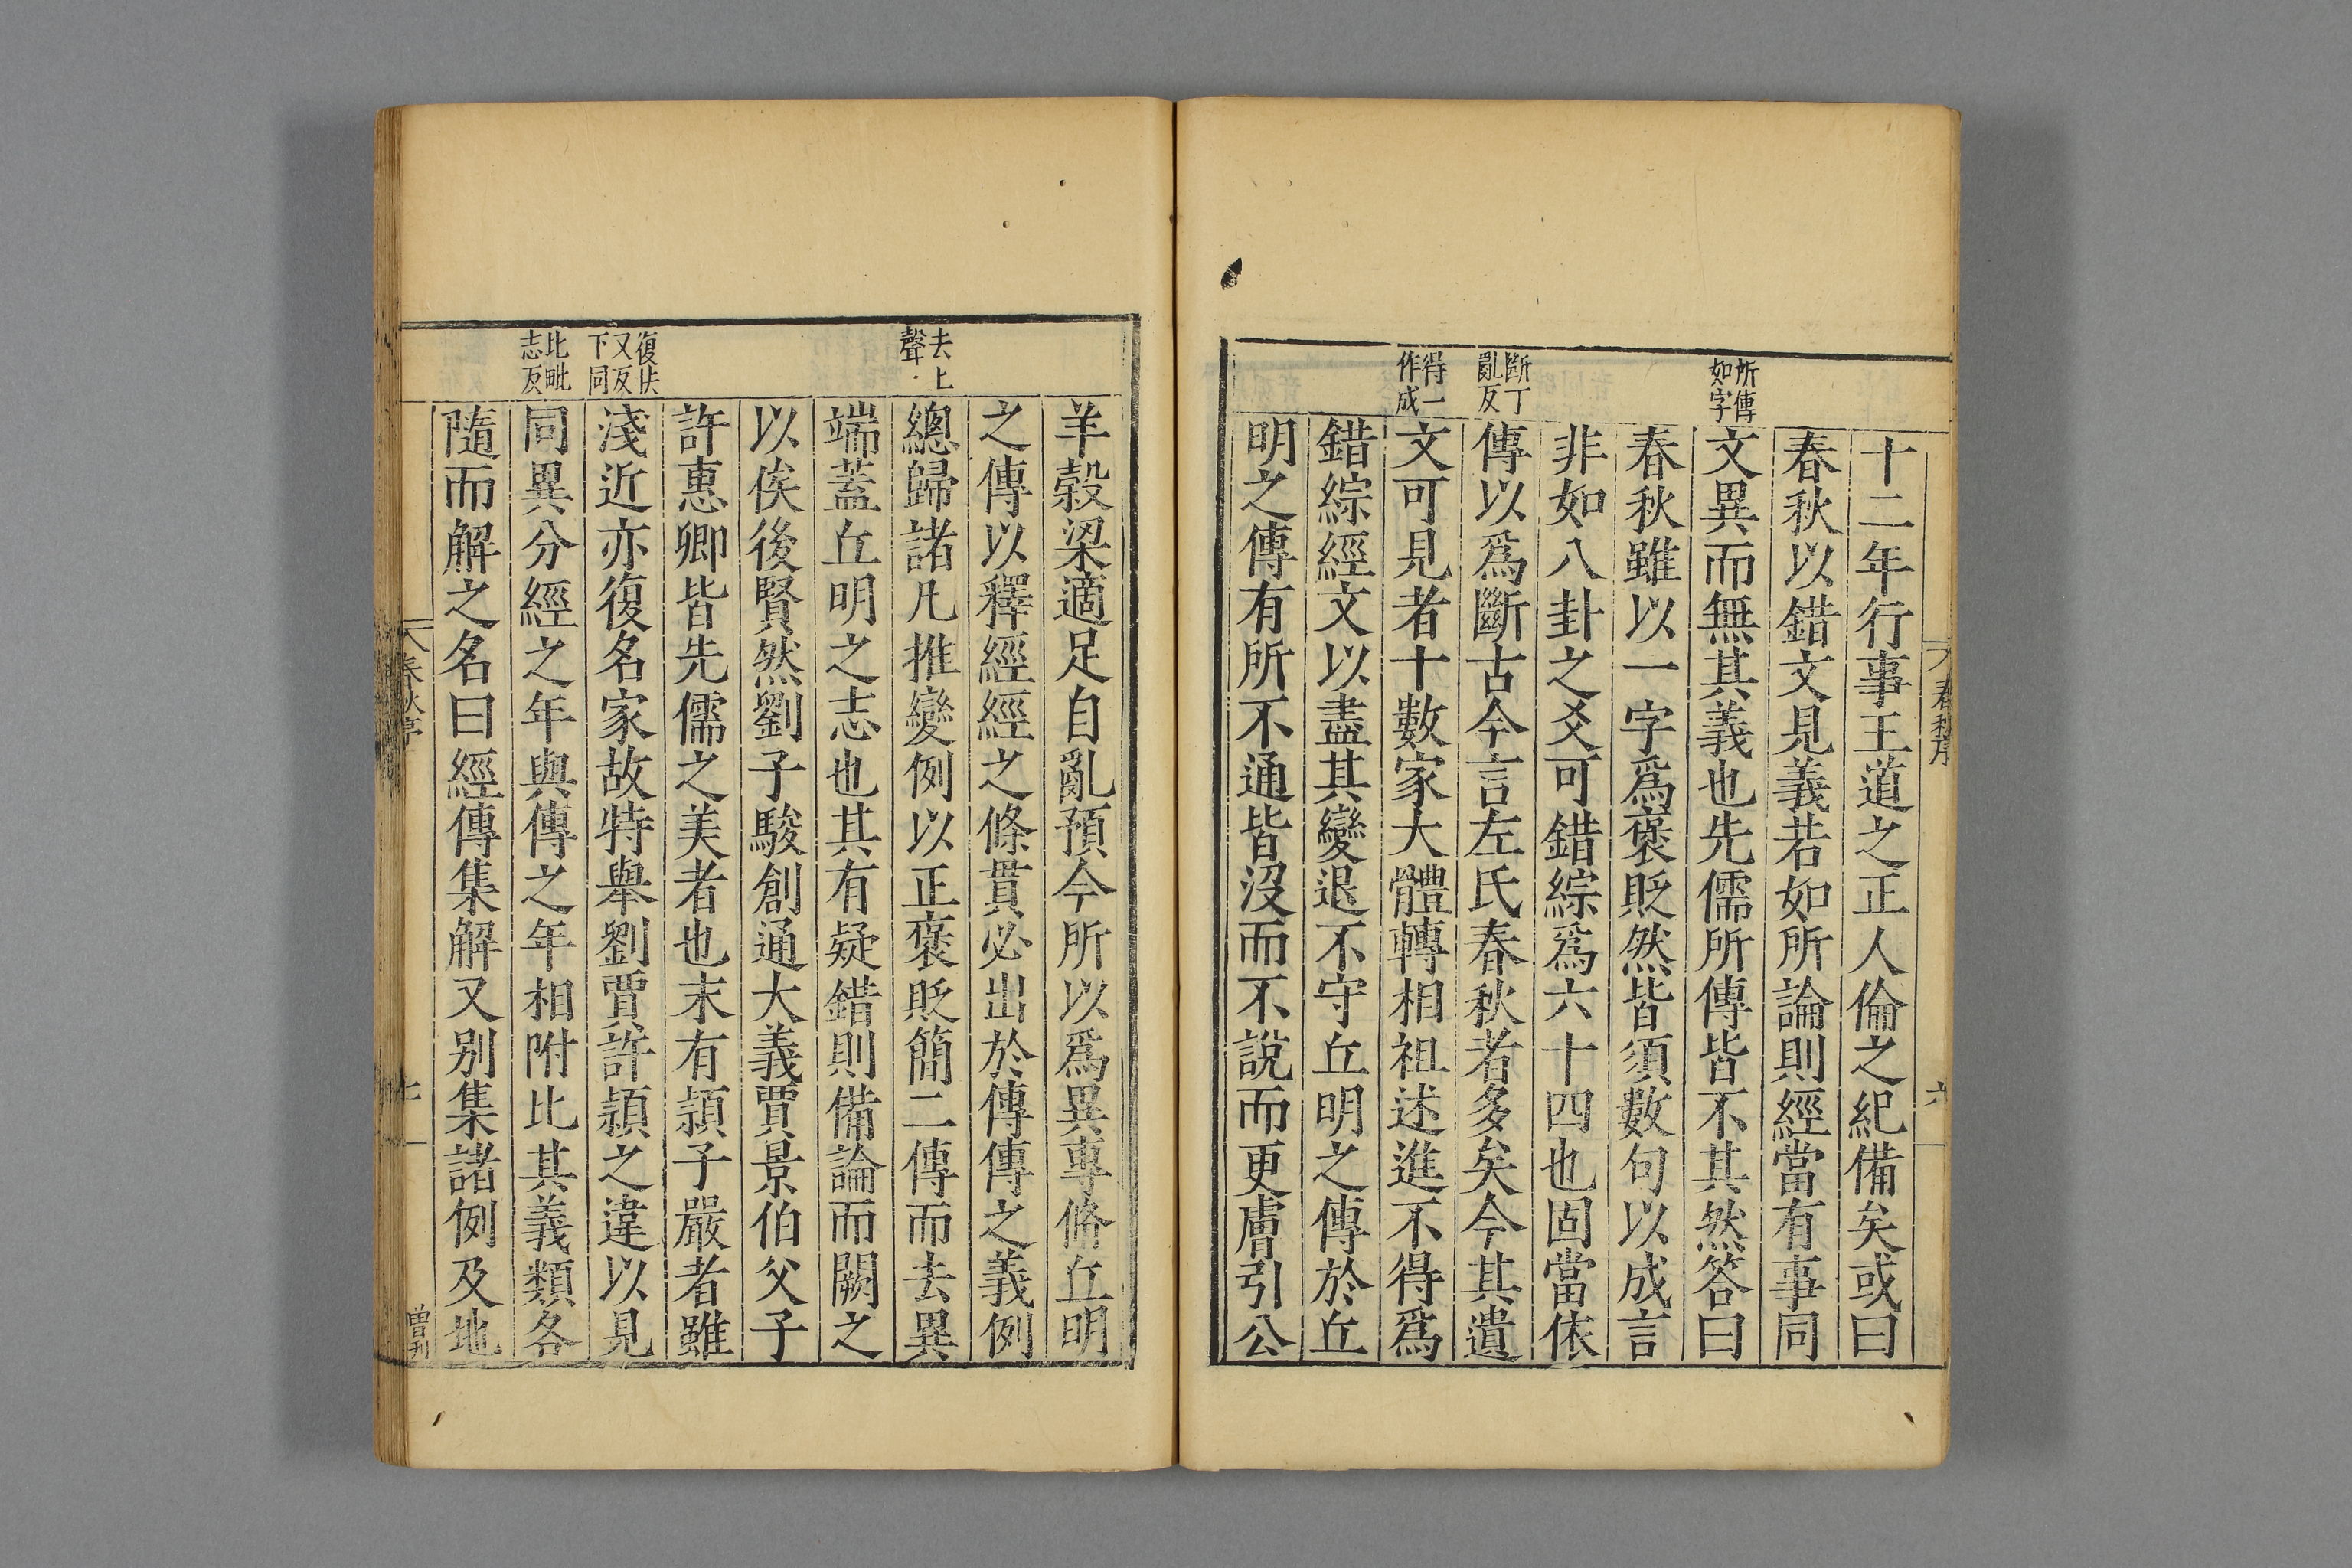 春秋序
六
十二年行事王道之正人倫之紀備矣或曰
春秋以錯文見義若如所論則經當有事同
所傳
如字
文異而無其義也先儒所傳皆不其然答曰
春秋雖以一字爲褒貶然皆須數句以成言
非如八卦之爻可錯綜爲六十四也固當依
斷丁
亂反
傳以爲斷古今言左氏春秋者多矣今其遺
得一
作成
文可見者十數家大體轉相祖述進不得爲
錯綜經文以盡其變退不守丘明之傳於丘
明之傳有所不通皆沒而不說而更膚引公
羊榖梁適足自亂預今所以爲異專脩丘明
之傳以釋經經之條貫必出於傳傳之義例
去上
聲
總歸諸凡推變例以正褒貶簡二傳而去異
端蓋丘明之志也其有疑錯則備論而闕之
以俟後賢然劉子駿創通大義賈景伯父子
許惠卿皆先儒之美者也末有潁子嚴者雖
復扶
又反
下同
淺近亦復名家故特舉劉賈許潁之違以見
比毗
志反
同異分經之年與傳之年相附比其義類各
隨而解之名曰經傳集解又別集諸例及地
春秋序
七